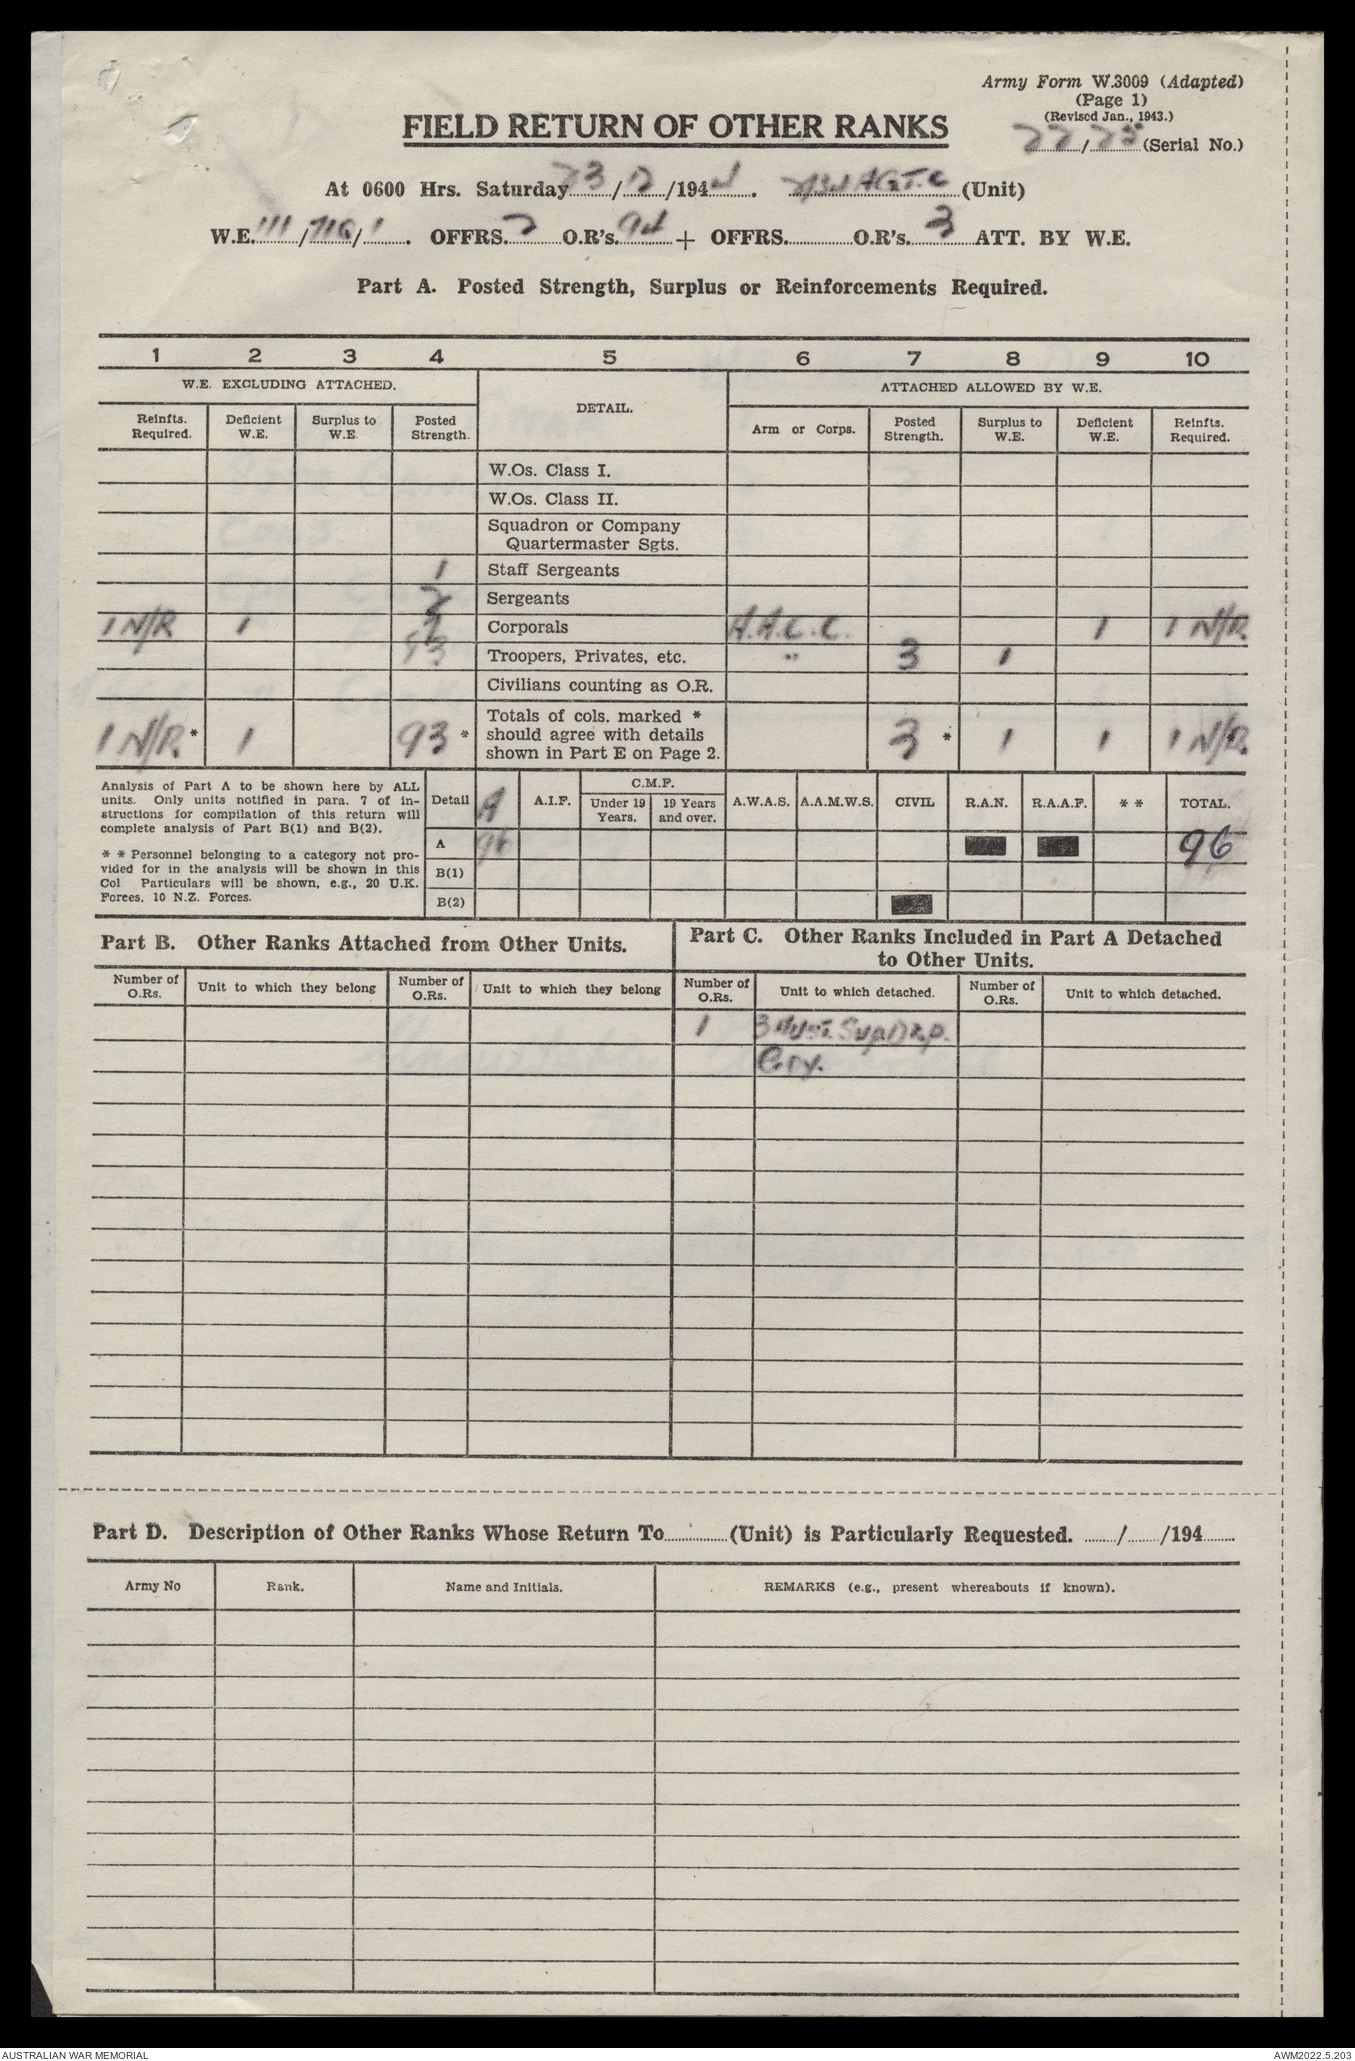 Army Form W.3009 (Adapted)
(Page 1)
(Revised Jan., 1943.)
FIELD RETURN OF OTHER RANKS
22/25 (Serial No.)
At 0600 Hrs. Saturday 23/12/1944. (Unit)
W.E. 111/ /1. OFFRS. 2 O.R's. 94 + OFFRS. O.R's. 3 ATT. BY W.E.
Part A. Posted Strength, Surplus or Reinforcements Required.
1 2 3 4 5 6 7 8 9 10
W.E. EXCLUDING ATTACHED. DETAIL. ATTACHED ALLOWED BY W.E.
Reinfts. Required. Deficient W.E. Surplus to W.E. Posted Strength. Arm or Corps. Posted Strength. Surplus to W.E. Deficient W.E. Reinfts. Required.
W.Os. Class I.
W.Os. Class II.
Squadron or Company
Quartermaster Sgts.
1 Staff Sergeants
2 Sergeants
1 N/R 1 Corporals A.A.C.C. 1 1 N/R
Troopers, Privates, etc. " 3 1
Civilians counting as O.R.
Totals of cols. marked *
should agree with details
shown in Part E on Page 2.
1 N/R * 1 93 * 3 * 1 1 1 N/R *
Analysis of Part A to be shown here by ALL
units. Only units notified in para. 7 of in-
structions for compilation of this return will
complete analysis of Part B(1) and B(2).
* * Personnel belonging to a category not pro-
vided for in the analysis will be shown in this
Col. Particulars will be shown, e.g., 20 U.K.
Forces, 10 N.Z. Forces.
Detail A A.I.F. C.M.F. Under 19 Years. 19 Years and over. A.W.A.S. A.A.M.W.S. CIVIL R.A.N. R.A.A.F. * * TOTAL.
A 96 96
B(1)
B(2)
Part B. Other Ranks Attached from Other Units.
Part C. Other Ranks Included in Part A Detached
to Other Units.
Number of O.Rs. Unit to which they belong Number of O.Rs. Unit to which they belong Number of O.Rs. Unit to which detached. Number of O.Rs. Unit to which detached.
1 3 Aust. Sup Dep.
Coy.
Part D. Description of Other Ranks Whose Return To (Unit) is Particularly Requested. / /194
Army No Rank. Name and Initials. REMARKS (e.g., present whereabouts if known).
AUSTRALIAN WAR MEMORIAL AWM2022.5.203